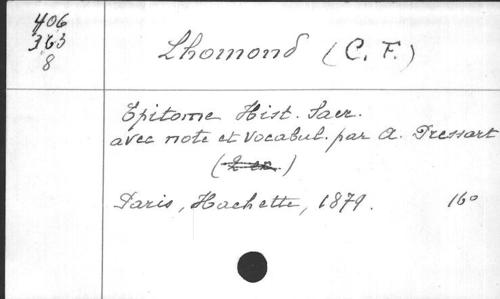 406
363
8
Lhomond (C. F.)
Epitome Hist. Sacr.
avec note et vocabul. par A. Pressart
Paris, Hachette, 1879. 16°